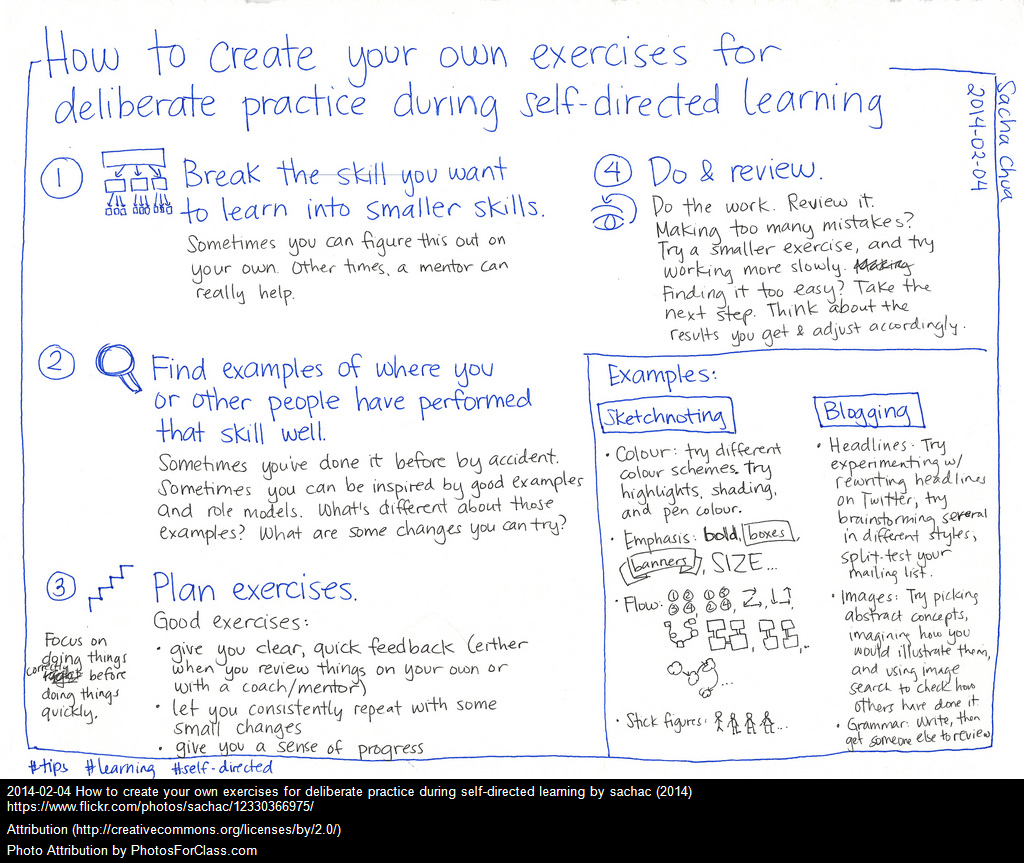 How to create your own exercises for
deliberate practice during self-directed learning
Sacha Chua
2014-02-04
1
Break the skill you want
to learn into smaller skills.
Sometimes you can figure this out on
your own. Other times, a mentor can
really help.
2
Find examples of where you
or other people have performed
that skill well.
Sometimes you've done it before by accident.
Sometimes you can be inspired by good examples
and role models. What's different about those
examples? What are some changes you can try?
3
Plan exercises.
Focus on
doing things
correctly
before
doing things
quickly.
Good exercises:
• give you clear, quick feedback (either
when you review things on your own or
with a coach/mentor)
• let you consistently repeat with some
small changes
• give you a sense of progress
4
Do & review.
Do the work. Review it.
Making too many mistakes?
Try a smaller exercise, and try
working more slowly.
Finding it too easy? Take the
next step. Think about the
results you get & adjust accordingly.
Examples:
Sketchnoting
• Colour: try different
colour schemes. try
highlights, shading,
and pen colour.
• Emphasis: bold, boxes,
banners, SIZE...
• Flow: 1 2 3 4, 1 3 2 4, Z,
• Stick figures: ...
Blogging
• Headlines: Try
experimenting w/
rewriting headlines
on Twitter, try
brainstorming several
in different styles,
split-test your
mailing list.
• Images: Try picking
abstract concepts,
imagining how you
would illustrate them,
and using image
search to check how
others have done it
• Grammar: Write, then
get someone else to review
#tips #learning #self-directed
2014-02-04 How to create your own exercises for deliberate practice during self-directed learning by sachac (2014)
https://www.flickr.com/photos/sachac/12330366975/
Attribution (http://creativecommons.org/licenses/by/2.0/)
Photo Attribution by PhotosForClass.com